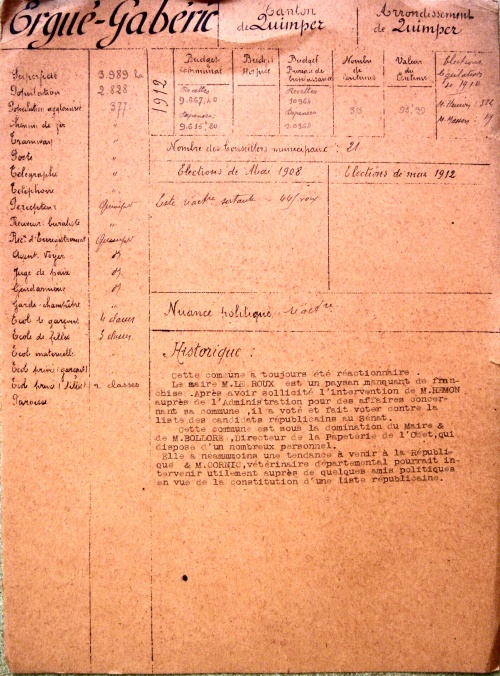 Ergué-Gabéric
Canton de Quimper
Arrondissement de Quimper
Superficie 3.989 ha
Population 2.828
Population agglomérée 377
Chemin de fer "
Tramway "
Poste "
Télégraphe "
Téléphone "
Percepteur Quimper
Receveur buraliste "
Rec. d'Enregistrement Quimper
Agent Voyer d°
Juge de paix d°
Gendarmerie d°
Garde-champêtre "
Ecole de garçons 4 classes
Ecole de filles 3 classes
Ecole maternelle
Ecole privée (garçons)
Ecole privée (filles) 2 classes
Paroisse
1912
Budget communal
Recettes
9.667,40
Dépenses
9.635,80
Budget Hospice
Budget Bureau de bienfaisance
Recettes
Dépenses
Nombre de Centimes
Valeur du Centime
Elections législatives de 1910
Nombre des Conseillers municipaux : 21
Elections de Mai 1908
Elections de mai 1912
Liste réactre sortante
Nuance politique réactre
Historique :
Cette commune à toujours été réactionnaire .
Le maire M.LE.ROUX est un paysan manquant de fran-
chise .Après avoir sollicité l'intervention de M.HEMON
auprès de l'Administration pour des affaires concer-
nant sa commune ,il a voté et fait voter contre la
liste des candidats républicains au Sénat.
Cette commune est sous la domination du Maire &
de M.BOLLORE ,Directeur de la Papeterie de l'Odet,qui
dispose d'un nombreux personnel.
Elle a néammmoins une tendance à venir à la Républi-
que & M.CORNIC,vétérinaire départemental pourrait in-
tervenir utilement auprès de quelques amis politiques
en vue de la constitution d'une liste républicaine.